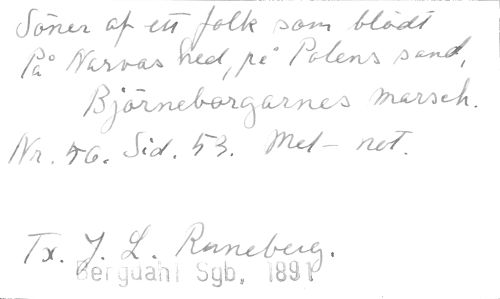 Söner af ett folk som blödt
På Narvas hed, på Polens sand,
Björneborgarnes marsch.
Nr. 56. Sid. 53. Mel- not.
Tx. J. L. Runeberg.
Bergdahl Sgb. 1891